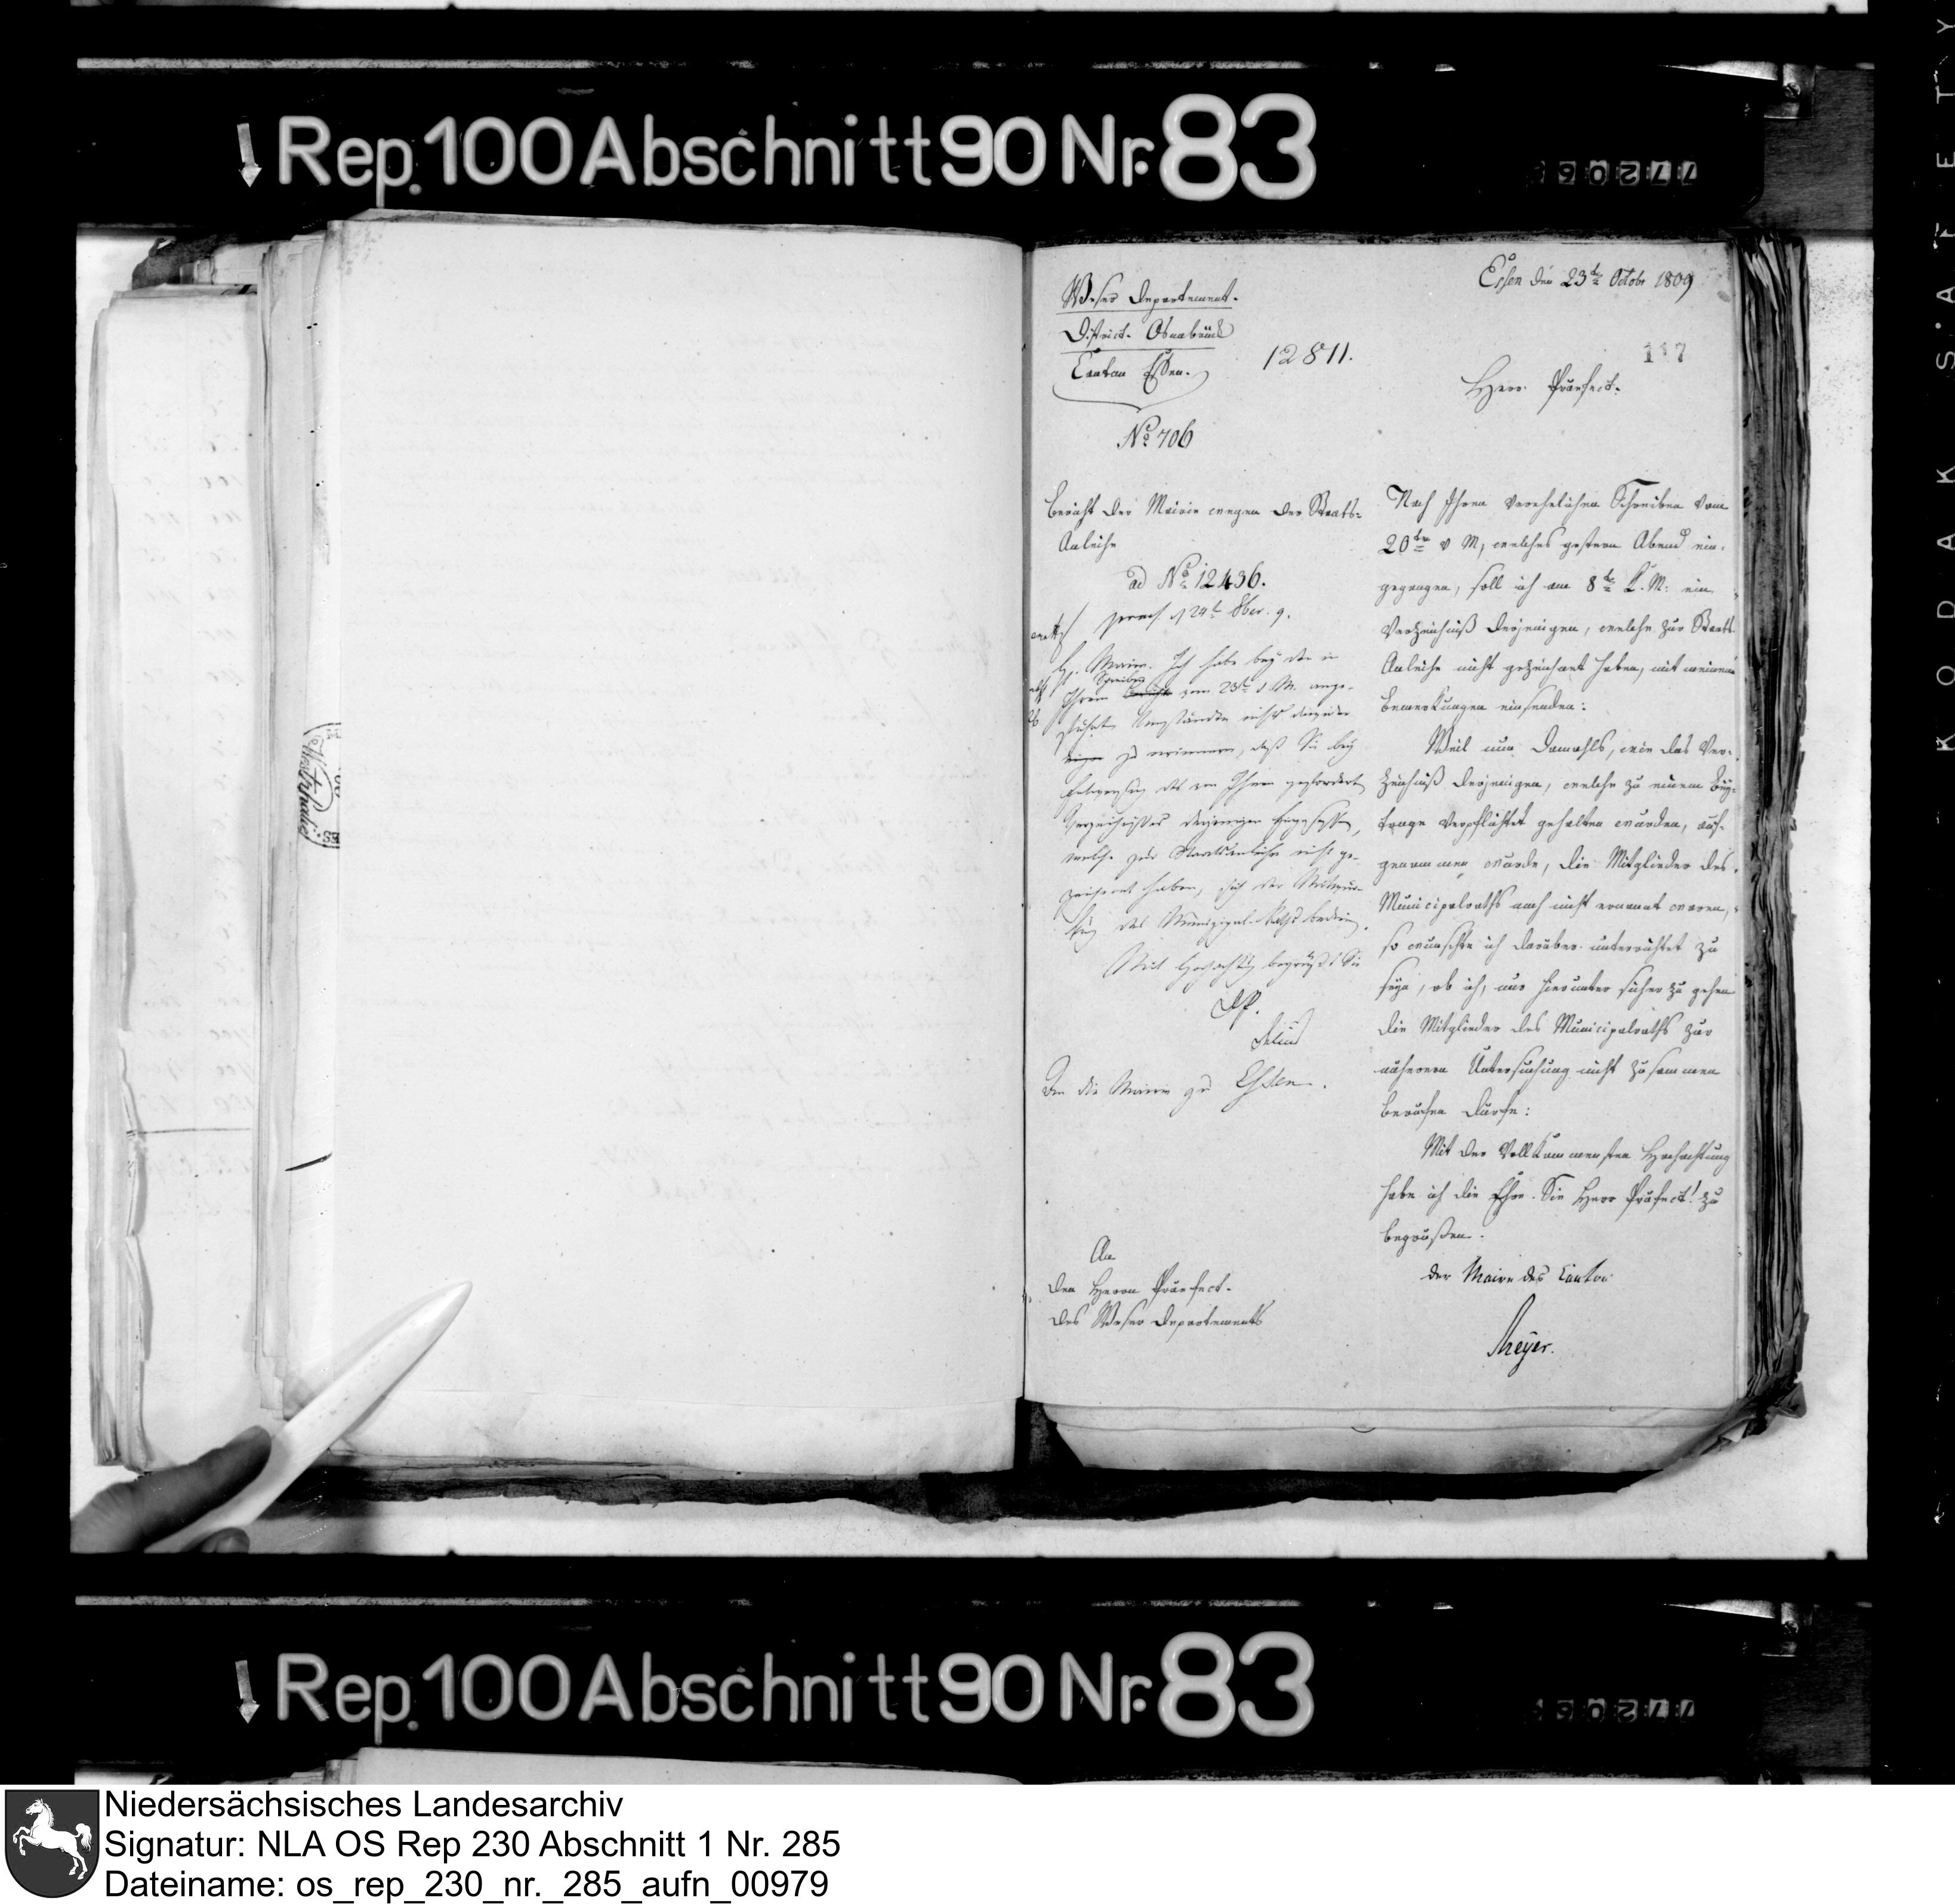 Rep. 100 Abschnitt 90 Nr. 83
77206
Weser Departement.
District. Osnabrück
Canton Essen.
No 706
12811.
Essen den 23t Octobr 1809
117
Herr Präfect.
Bericht der Mairie wegen der Staats-
Anleihe
ad No 12436.
H. Maire. Ich habe bey den in
Schreiben
Ihrem vom 23ten d. M. ange-
führten Umständen nichts
zu erinnern, daß Sie bey
des von Ihnen geforderten
Verzeichnisses derjenigen
welche zur Staatsanleihe nicht ge-
zeichnet haben, sich der
des Munizipal-Raths bedien.
Mit Hochachtung begrüßt Sie
DP.
Delius
An die Mairie zu Essen.
Nach Ihren verehrlichen Schreiben vom
20ten d M, welches gestern Abend ein-
gegangen, soll ich am 8t k. M: ein
Verzeichniß derjenigen, welche zur Staats-
Anleihe nicht gezeichnet haben, mit meinen
Bemerkungen einsenden:
Weil nun damahls, wie das Ver-
zeichniß derjenigen, welche zu einem Bey-
trage verpflichtet gehalten wurden, auf-
genommen wurde, die Mitglieder des
Municipalraths noch nicht ernannt waren,
so wünschte ich darüber unterrichtet zu
seyn, ob ich, um hierunter sicher zu gehen
die Mitglieder des Municipalraths zur
näheren Untersuchung nicht zusammen
berufen dürfe:
Mit der vollkommensten Hochachtung
habe ich die Ehre Sie Herr Präfect! zu
begrüßen.
der Maire des Canton
Meyer.
An
den Herrn Präfect.
des Weser Departements
Rep. 100 Abschnitt 90 Nr. 83
77206
KODAK SAFETY
Niedersächsisches Landesarchiv
Signatur: NLA OS Rep 230 Abschnitt 1 Nr. 285
Dateiname: os_rep_230_nr._285_aufn_00979